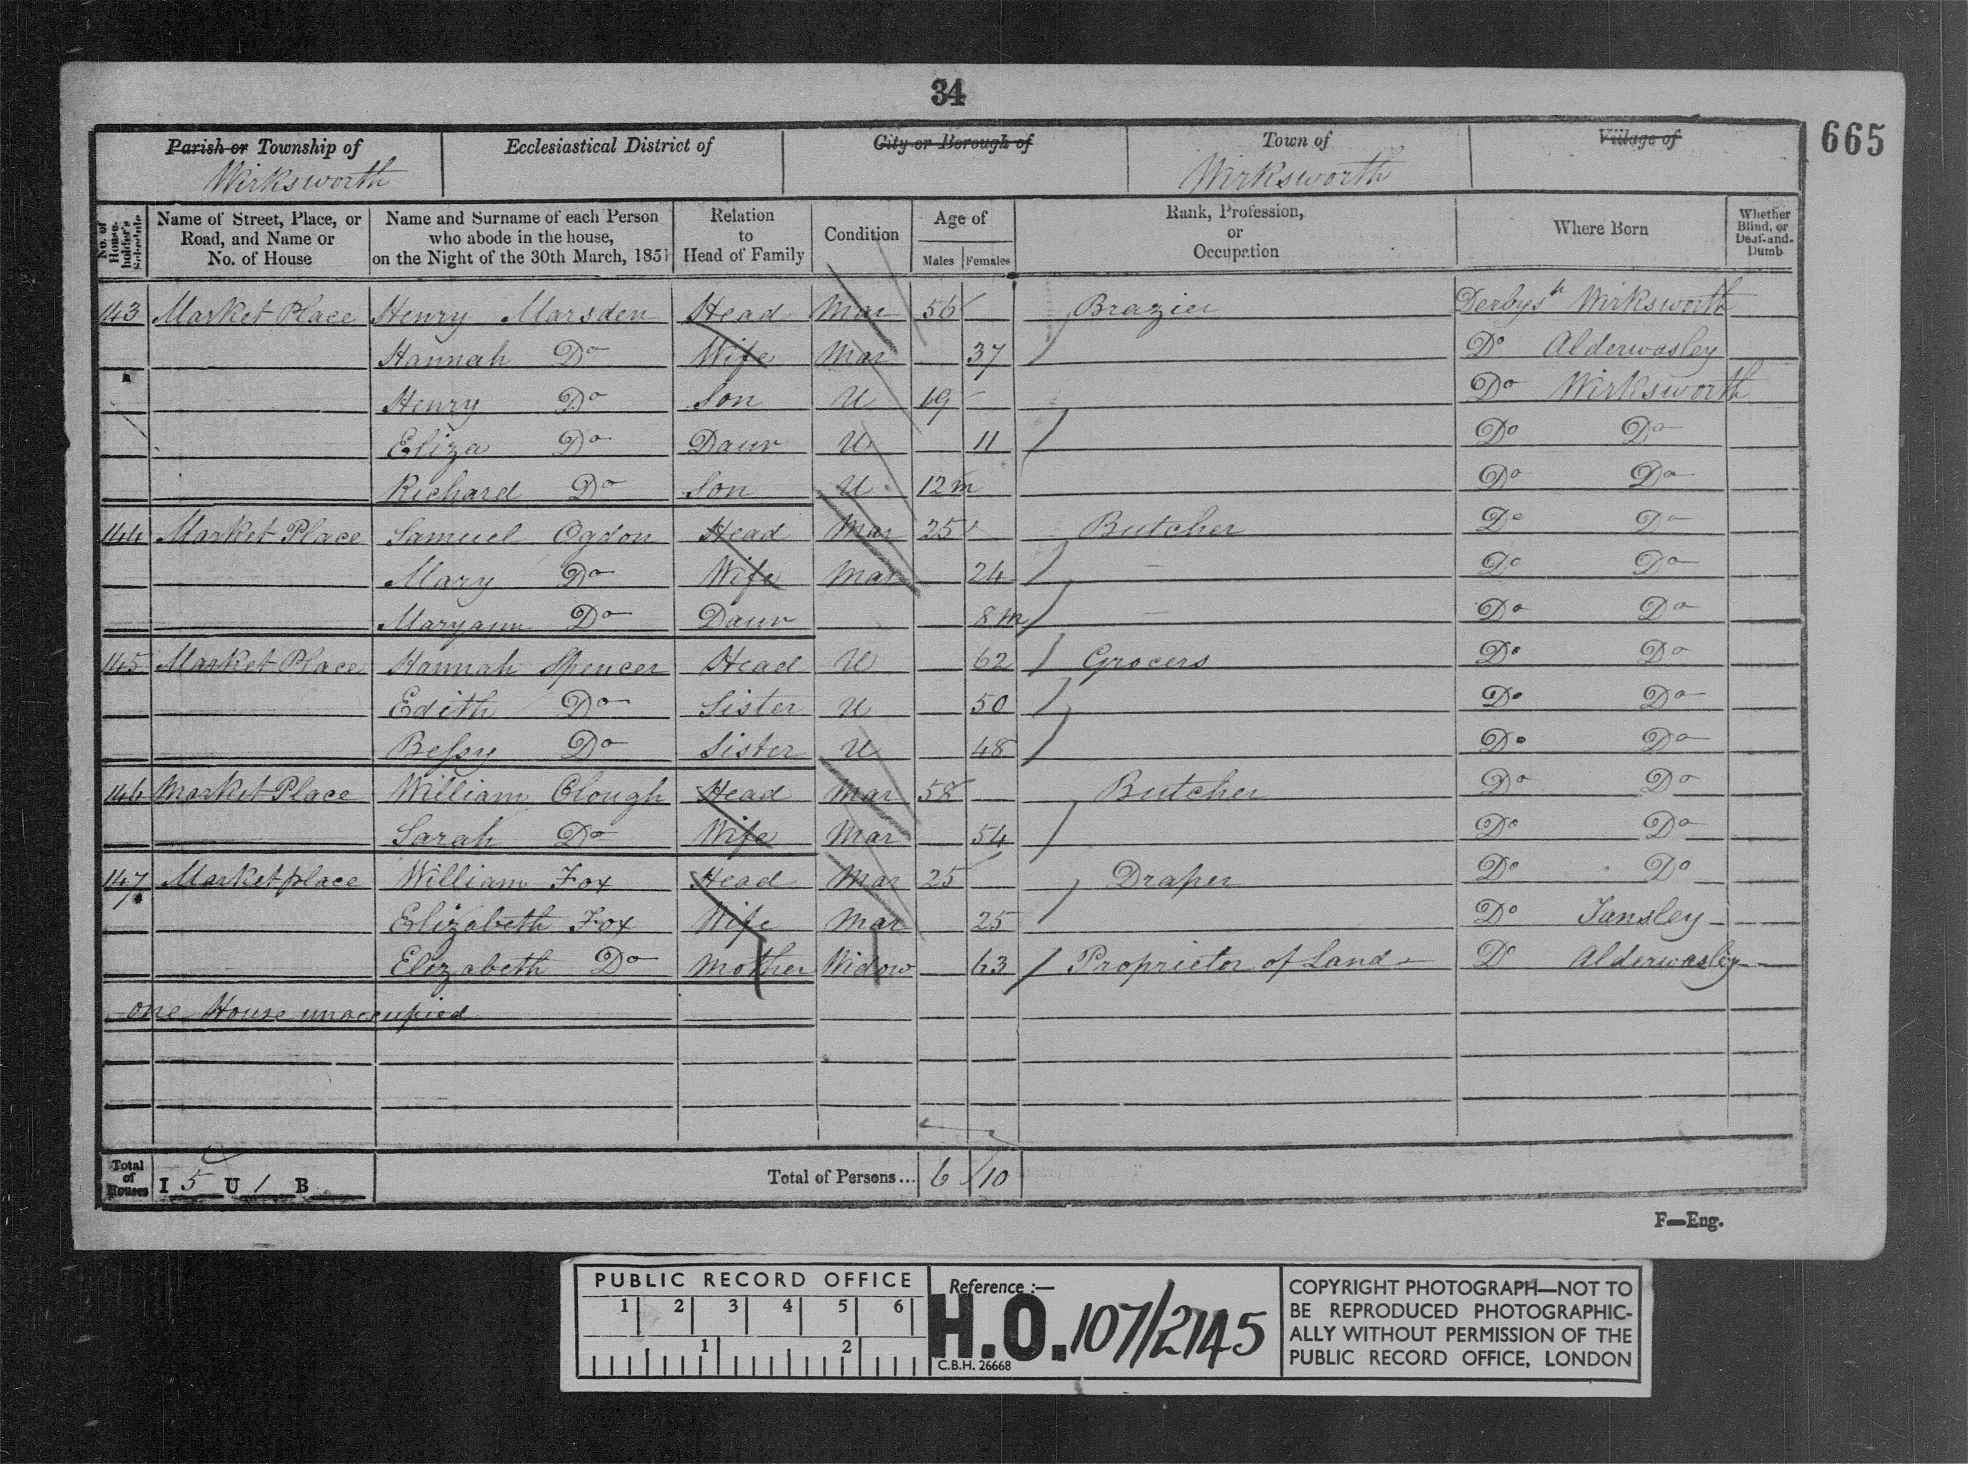 34
665
Parish or Township of Ecclesiastical District of City or Borough of Town of Village of
Wirksworth Wirksworth
No. of House-holder's Schedule Name of Street, Place, or Road, and Name or No. of House Name and Surname of each Person who abode in the house, on the Night of the 30th March, 1851 Relation to Head of Family Condition Age of Males Females Rank, Profession, or Occupation Where Born Whether Blind, or Deaf-and-Dumb
143 Market Place Henry Marsden Head Mar 56 Brazier Derbysh Wirksworth
Hannah Do Wife Mar 37 Do Alderwasley
Henry Do Son U 19 Do Wirksworth
Eliza Do Daur U 11 Do Do
Richard Do Son U 12m Do Do
144 Market Place Samuel Ogdon Head Mar 25 Butcher Do Do
Mary Do Wife Mar 24 Do Do
Maryann Do Daur 8m Do Do
145 Market Place Hannah Spencer Head U 62 Grocers Do Do
Edith Do Sister U 50 Do Do
Bessy Do Sister U 48 Do Do
146 Market Place William Clough Head Mar 58 Butcher Do Do
Sarah Do Wife Mar 54 Do Do
147 Marketplace William Fox Head Mar 25 Draper Do Do
Elizabeth Fox Wife Mar 25 Do Tansley
Elizabeth Do Mother Widow 63 Proprietor of Land Do Alderwasley
one House unoccupied
Total of Houses I 5 U 1 B Total of Persons... 6 10
F—Eng.
PUBLIC RECORD OFFICE
1 2 3 4 5 6
1 2
Reference :—
H.O. 107/2145
C.B.H. 26668
COPYRIGHT PHOTOGRAPH—NOT TO
BE REPRODUCED PHOTOGRAPHIC-
ALLY WITHOUT PERMISSION OF THE
PUBLIC RECORD OFFICE, LONDON